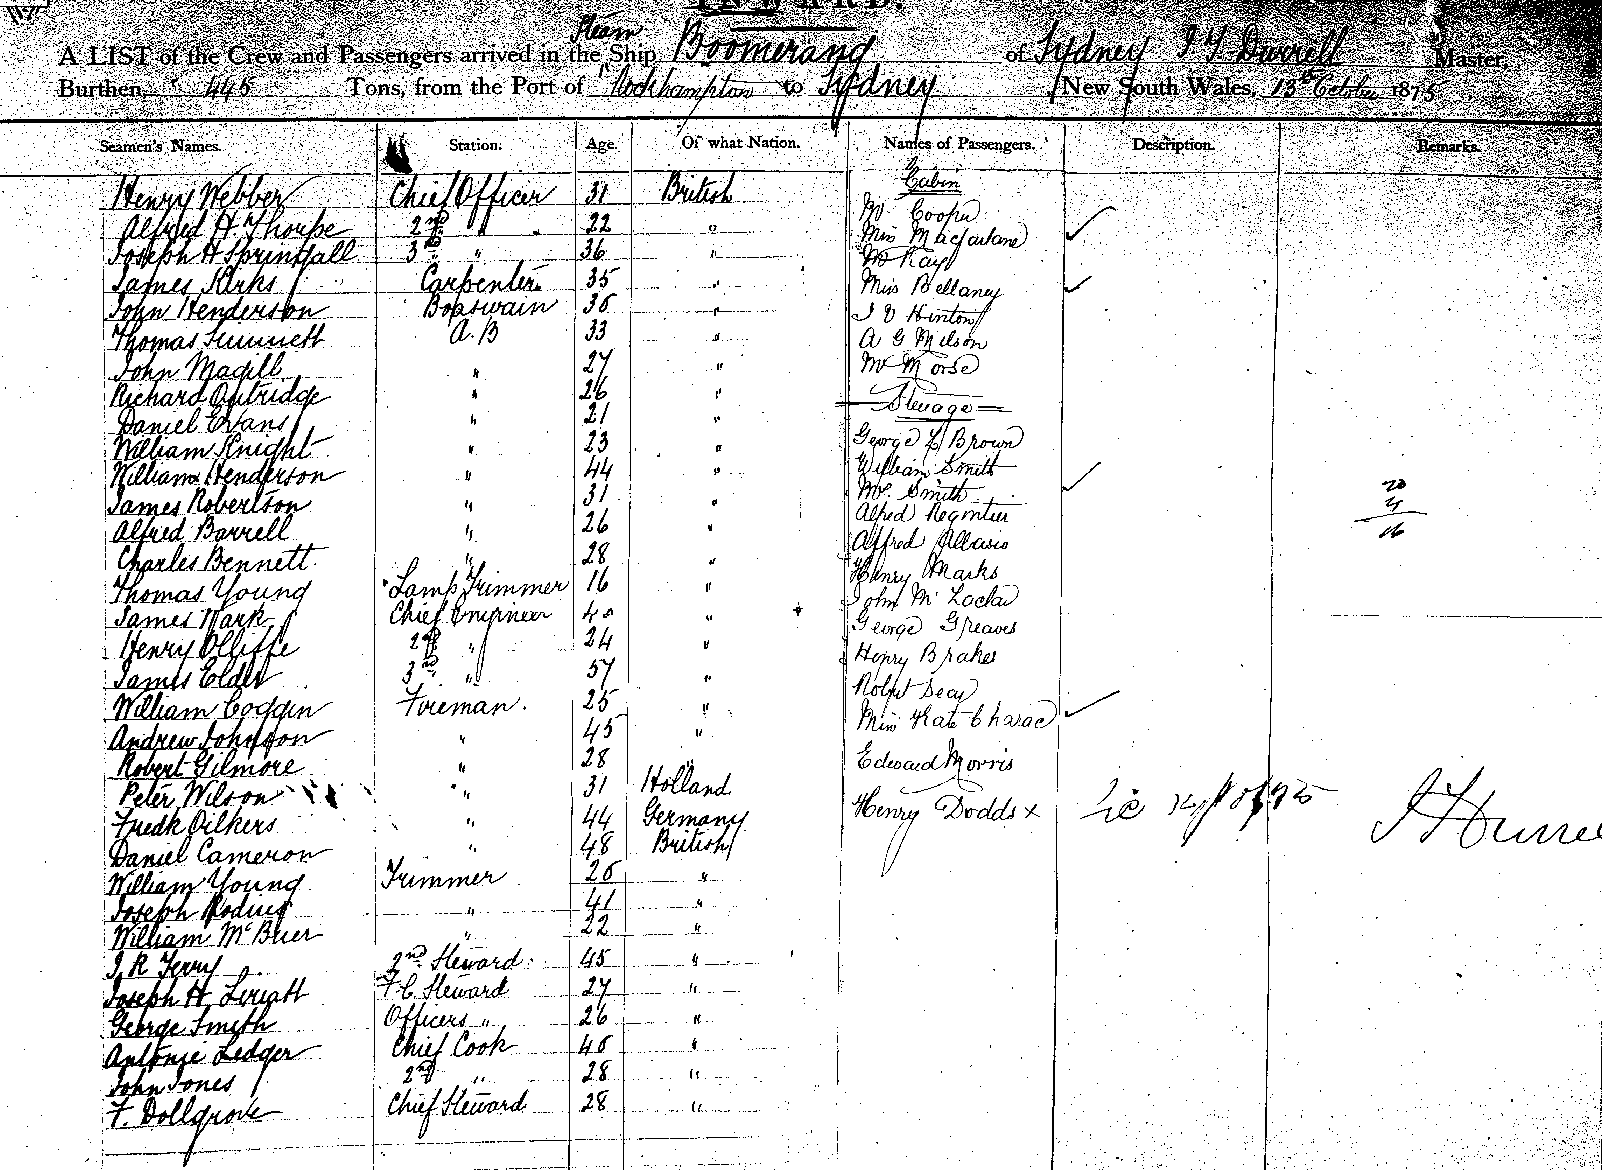 INWARD.
A LIST of the Crew and Passengers arrived in the Steam Ship Boomerang of Sydney Master,
Burthen 445 Tons, from the Port of Rockhampton to Sydney New South Wales, 13th October 1875
Seamen's Names. Station. Age. Of what Nation. Names of Passengers. Description. Remarks.
Henry Webber Chief Officer 31 British Cabin
Alfred H Thorpe 2nd " 22 " Mr Cooper
Joseph H Springall 3rd " 36 " Miss Macfarlane
Mr Kay
James Kirks Carpenter 35 " Miss Bellaney
John Henderson Boaswain 36 " J V Hinton
Thomas A.B 33 " A G Milson
John Magill " 27 " Mr Morse
Richard Outridge " 26 " Steuage
Daniel Evans " 21 "
William Knight " 23 " George Brown
William Henderson " 44 " William Smith
James Robertson " 31 " Mr. Smith 20
Alfred Barrell " 26 " Alfred 4
Charles Bennett " 28 " Alfred 16
Thomas Young Lamp Trimmer 16 " Henry Marks
James Wark Chief Engineer 40 " John
Henry Olliffe 2nd " 24 " George Greaves
James Elder 3rd " 57 " Henry Brakes
William Coggin Foreman. 25 " Robert
Andrew Johnson " 45 " Miss Kate
Robert Gilmore " 28 " Edward Morris
Peter Wilson " 31 Holland
Fredk Oilkers " 44 Germany Henry Dodds x
Daniel Cameron " 48 British
William Young Trimmer 26 "
Joseph " 41 "
William " 22 "
J. R Terry 2nd Steward 45 "
Joseph H. F C Steward 27 "
George Smith Officers " 26 "
Antonie Ledger Chief Cook 46 "
John Jones 2nd " 28 "
F. Dollgrove Chief Steward 28 "